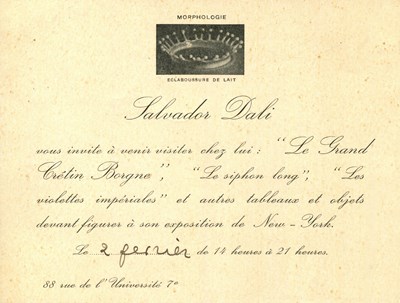 MORPHOLOGIE
ECLABOUSSURE DE LAIT
Salvador Dali
vous invite à venir visiter chez lui : "Le Grand
Crétin Borgne", "Le siphon long", "Les
violettes impériales" et autres tableaux et objets
devant figurer à son exposition de New-York.
Le 2 fevrier de 14 heures à 21 heures.
88 rue de l'Université 7e